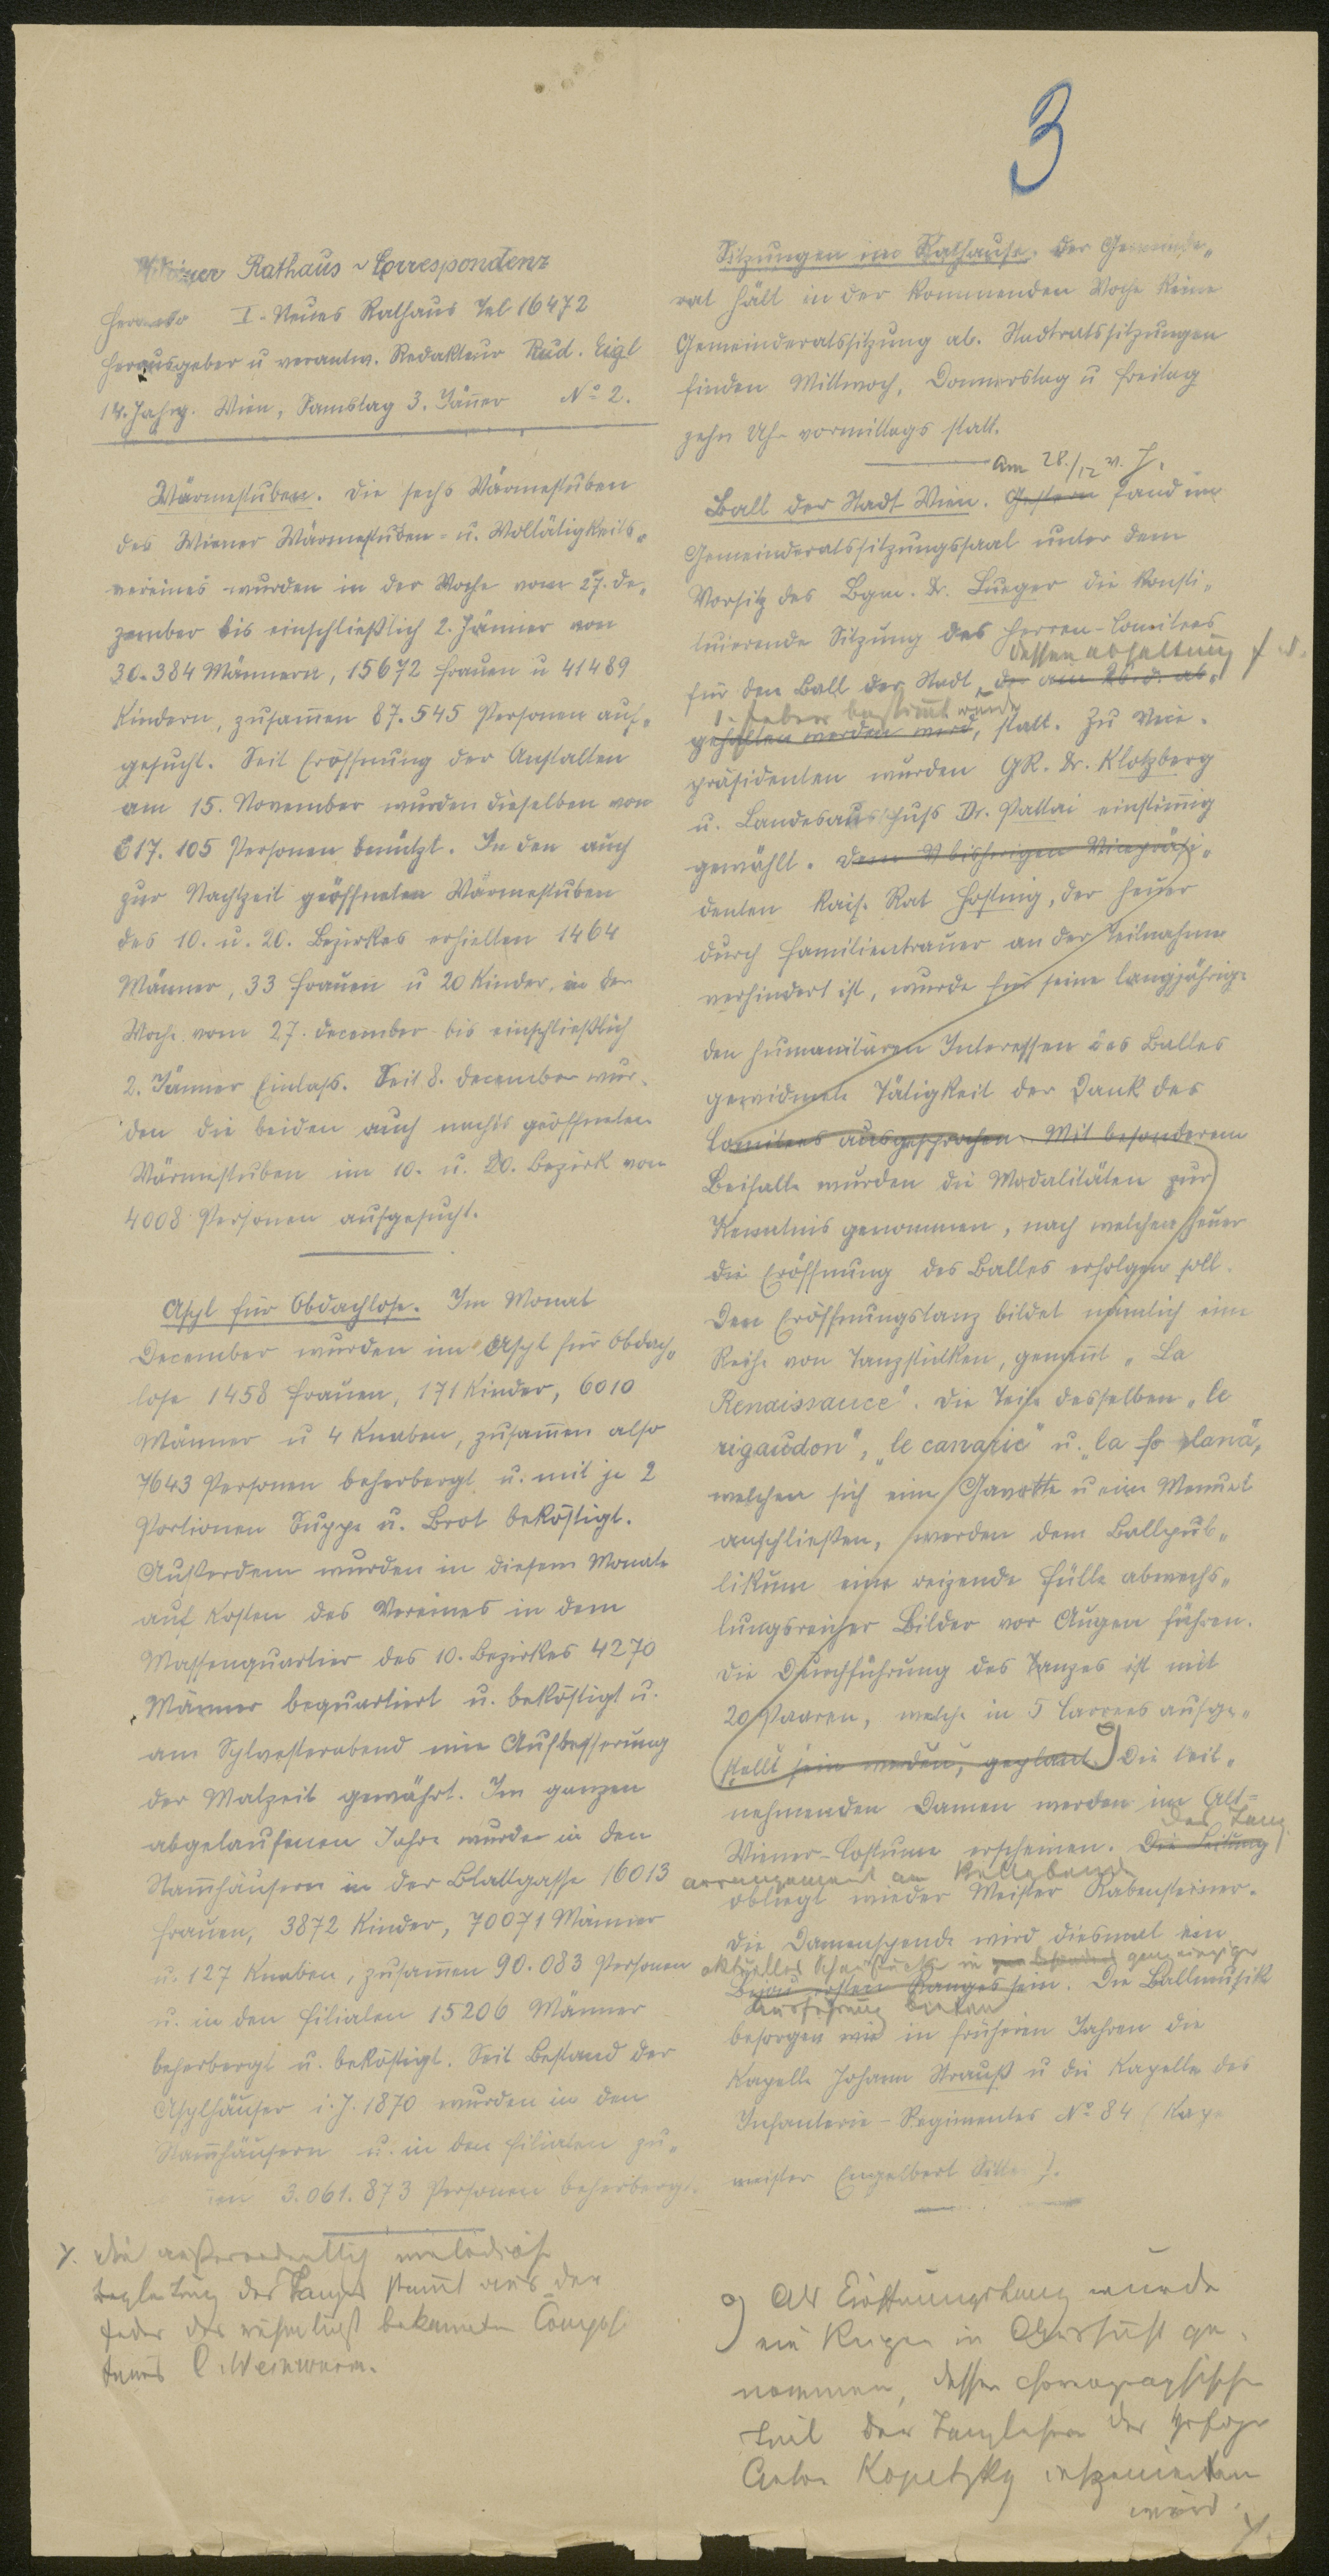 3
Wiener Rathaus-Correspondenz
I. Neues Rathaus Tel 16472
Herausgeber u verantw. Redakteur Rud. Eigl
14. Jahrg. Wien, Samstag 3. Jänner No 2.
Wärmestuben. Die sechs Wärmestuben
des Wiener Wärmestuben- u. Wolltätigkeits„
vereines wurden in der Woche vom 27. De„
zember bis einschließlich 2. Jänner von
30.384 Männern, 15672 Frauen u 41489
Kindern, zusamen 87.545 Personen auf„
gesucht. Seit Eröffnung der Anstalten
am 15. November wurden dieselben von
617.105 Personen benützt. In den auch
zur Nachtzeit geöffneten Wärmestuben
des 10. u. 20. Bezirkes erhielten 1464
Männer, 33 Frauen u 20 Kinder, in der
Woche vom 27. December bis einschließlich
2. Jänner Einlass. Seit 8. December wur„
den die beiden auch nachts geöffneten
Wärmestuben im 10. u. 20. Bezirk von
4008 Personen aufgesucht.
Asyl für Obdachlose. Im Monat
December wurden im Asyl für Obdach„
lose 1458 Frauen, 171 Kinder, 6010
Männer u 4 Knaben, zusamen also
7643 Personen beherbergt u. mit je 2
Portionen Suppe u. Brot beköstigt.
Außerdem wurden in diesem Monate
auf Kosten des Vereines in dem
Massenquartier des 10. Bezirkes 4270
Männer bequartiert u. beköstigt u.
am Sylvesterabend eine Aufbesserung
der Malzeit gewährt. Im ganzen
abgelaufenen Jahre wurden in den
Stamhäusern in der Blattgasse 16013
Frauen, 3872 Kinder, 70071 Männer
u. 127 Knaben, zusamen 90.083 Personen
u. in den Filialen 15206 Männer
beherbergt u. beköstigt. Seit Bestand der
Asylhäuser i. J. 1870 wurden in den
Stamhäusern u. in den Filialen zu„
men 3.061.873 Personen beherbergt.
Y. Die außerordentlich melodiöse
Begleitung des Tanzes stamt aus der
Feder des rühmlichst bekannten Composi
teurs C. Weinwurm.
Sitzungen im Rathause. Der Gemeinde„
rat hält in der kommenden Woche keine
Gemeinderatssitzung ab. Stadtratssitzungen
finden Mittwoch, Donnerstag u Freitag
zehn Uhr vormittags statt.
am 28./12 v. J.
Ball der Stadt Wien. Gestern fand im
Gemeinderatssitzungssaal unter dem
Vorsitz des Bgm. Dr. Lueger die konsti„
tuierende Sitzung des Herren-Comitees
dessen Abhaltung
für den Ball der Stadt, der am 26. d. ab„
bestimt wurde
gehalten werden wird, statt. Zu Vice„
präsidenten wurden GR. Dr. Klotzberg
u. Landesausschuss Dr. Pattai einstimig
gewählt. Dem bisherigen Vicepräsi„
denten Kais. Rat Hosting, der heuer
durch Familientrauer an der Teilnahme
verhindert ist, wurde für seine langjährige
den humanitären Interessen des Balles
gewidmete Tätigkeit der Dank des
Comitees ausgesprochen. Mit besonderem
Beifalle wurden die Modalitäten zur
Kenntnis genommen, nach welchen heuer
die Eröffnung des Balles erfolgen soll.
Den Eröffnungstanz bildet nämlich eine
Reihe von Tanzstücken, genant „La
Renaissance“. Die Teile desselben „le
rigaudon“, „le canarie“ u. „la
welchen sich eine Gavotte u ein Menuet
anschließen, werden dem Ballpub„
likum eine reizende Fülle abwechs„
lungsreicher Bilder vor Augen führen.
Die Durchführung des Tanzes ist mit
20 Paaren, welche in 5 Carrees aufge„
stellt sein werden, geplant. Die teil„
nehmenden Damen werden im Alt-
Das Tanz
Wiener-Costume erscheinen. Die Leitung
arrangement am Ballabend
obliegt wieder Meister Rabensteiner.
Die Damenspende wird diesmal ein
aktuelles Schaustück in ganz einziger
Bijou ersten Ranges sein. Die Ballmusik
Ausführung bieten
besorgen wie in früheren Jahren die
Kapelle Johann Strauß u die Kapelle des
Infanterie-Regimentes No 84 (Kape
meister Engelbert
Als Eröffnungstanz wurde
ein Reigen in Aussicht ge„
nommen, dessen choreographischer
Teil der Tanzlehrer der Hofoper
Anton Kopetzky inszenieren
wird.
Y.